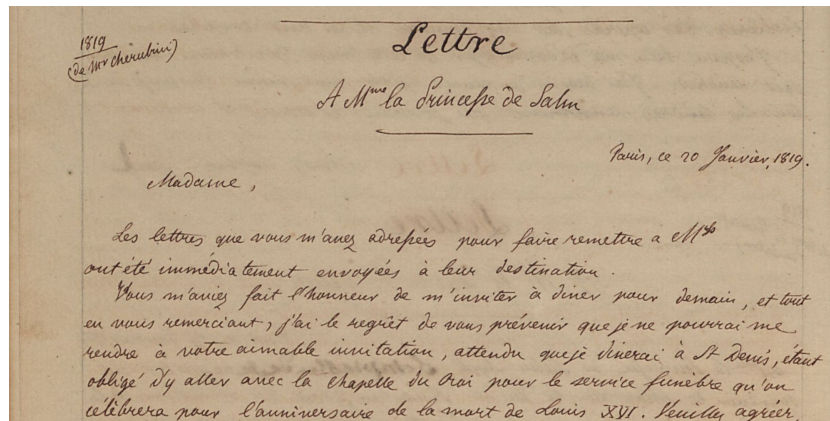 1819
(de Mr Chérubini)
Lettre
A Mme la Princesse de Salm
Paris, ce 20 Janvier, 1819.
Madame,
Les lettres que vous m'avez adressées pour faire remettre a Mrs
ont été immédiatement envoyées à leur destination.
Vous m'aviez fait l'honneur de m'inviter à diner pour demain, et tout
en vous remerciant, j'ai le regrêt de vous prévenir que je ne pourrai me
rendre à votre aimable invitation, attendu que je dinerai à St Denis, étant
obligé d'y aller avec la chapelle du roi pour le service funèbre qu'on
célèbrera pour l'anniversaire de la mort de Louis XVI. Veuillez agréer,